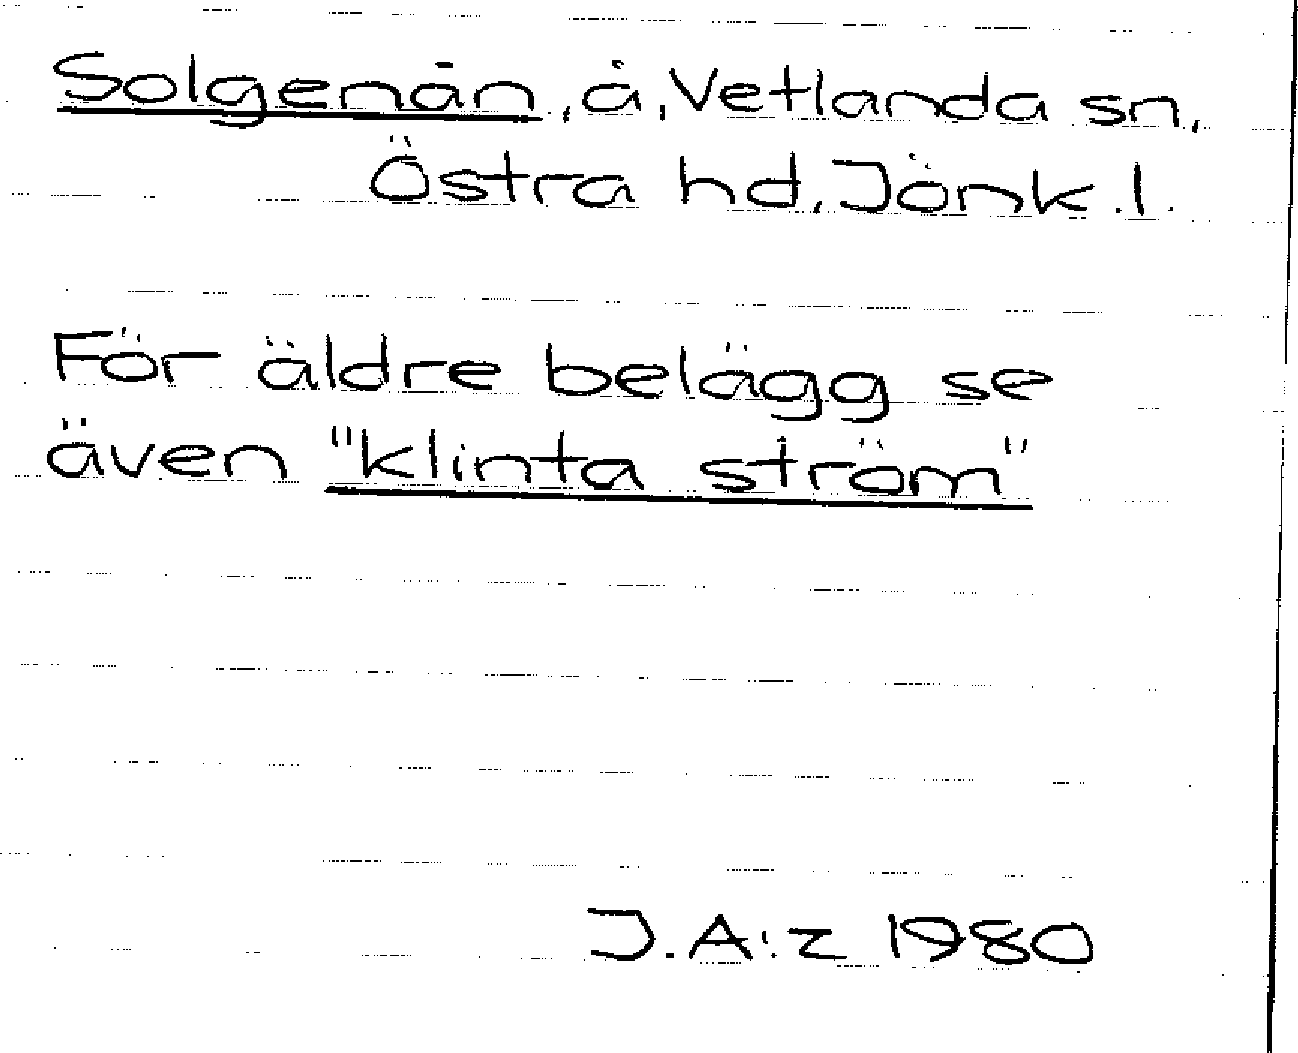 Solgenån, å, Vetlanda sn,
Östra hd, Jönk.l.
För äldre belägg se
även "klinta ström"
J.A:z 1980